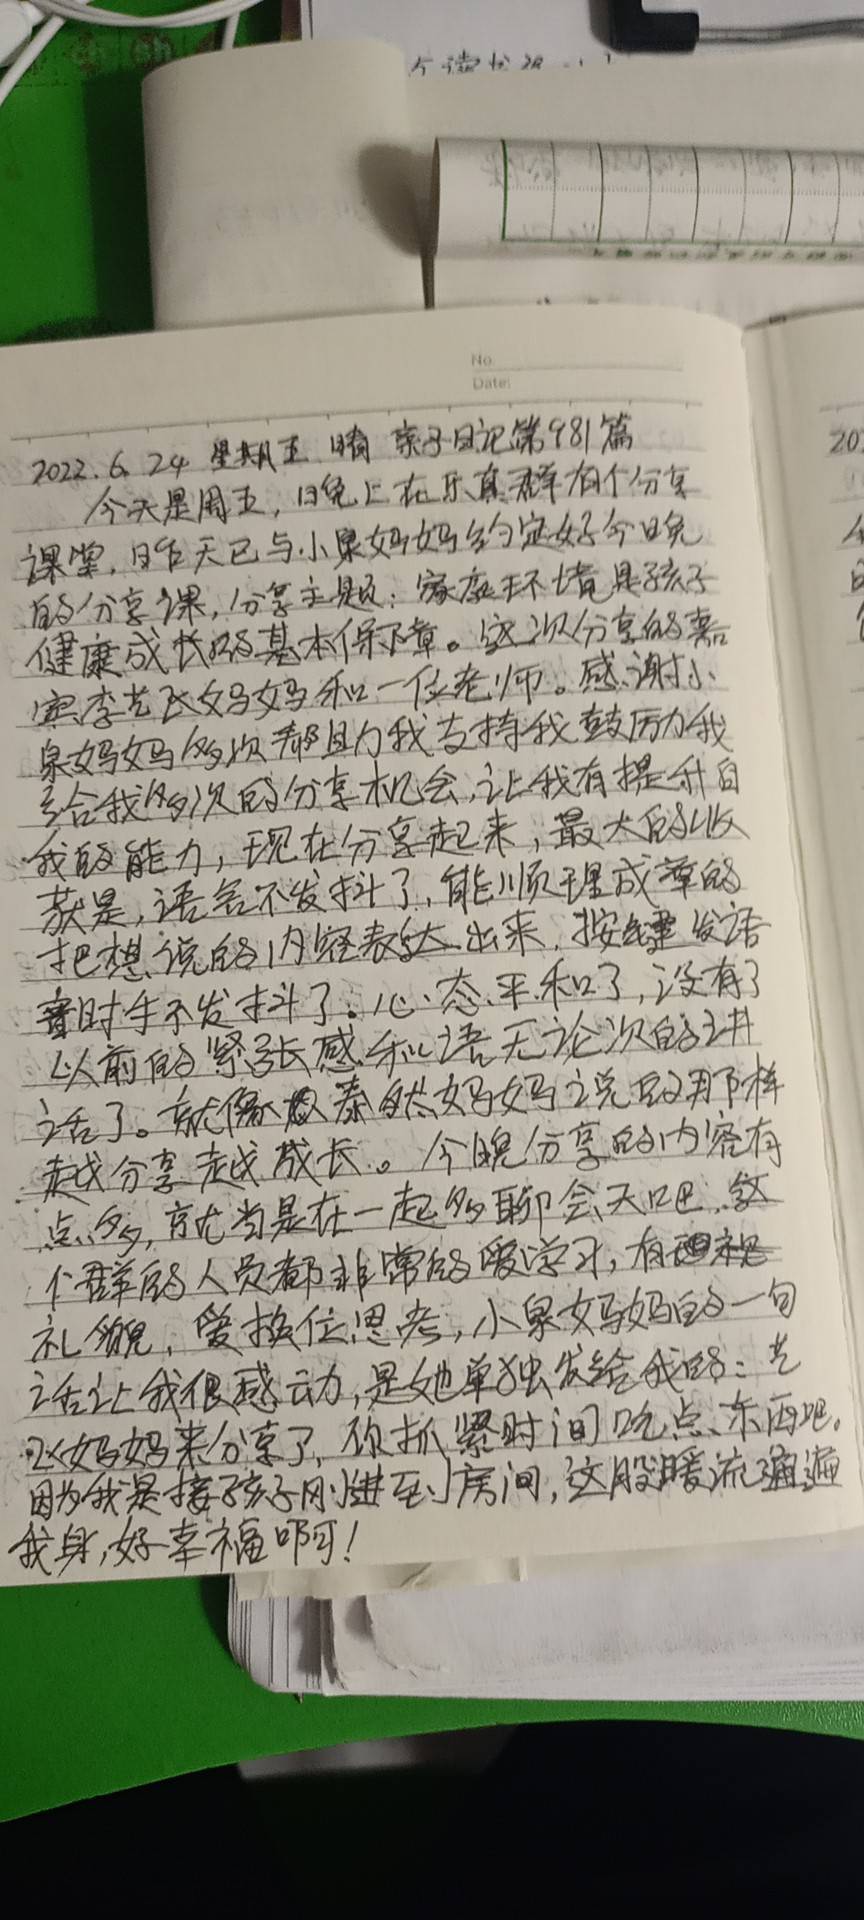 No.
Date:
2022.6.24 星期五 晴 亲子日记第981篇
今天是周五,晚上在乐真群有个分享
课堂,昨天已与小泉妈妈约定好今晚
的分享课,分享主题:家庭环境是孩子
健康成长的基本保障。这次分享的嘉
宾李艺飞妈妈和一位老师。感谢小
泉妈妈多次帮助我支持我鼓厉力我
给我多次的分享机会,让我有提升自
我的能力,现在分享起来,最大的收
获是,语言不发抖了,能顺理成章的
把想说的内容表达出来,按键发语
音时手不发抖了。心态平和了,没有了
以前的紧张感和语无论次的讲
话了。就像泰然妈妈说的那样
越分享越成长。今晚分享的内容有
点多,就当是在一起多聊会天吧,这
个群的人员都非常的爱学习,有
礼貌,爱换位思考,小泉妈妈的一句
话让我很感动,是她单独发给我的:艺
飞妈妈来分享了,你抓紧时间吃点东西吧。
因为我是接孩子刚进到房间,这股暖流通遍
我身,好幸福啊!
20